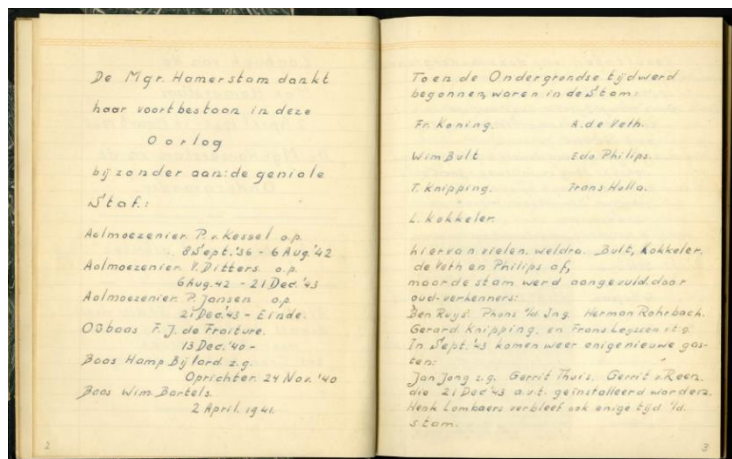 De Mgr. Hamerstam dankt
haar voortbestaan in deze
Oorlog
bijzonder aan: de geniale
Staf:
Aalmoezenier. P. v. Kessel o.p.
8 Sept. '36 - 6 Aug. '42
Aalmoezenier. V. Ditters. o.p.
6 Aug. 42 - 21 Dec. '43
Aalmoezenier P. Jansen o.p.
21 Dec. '43 - Einde.
Oubaas F. J. de Fraiture.
13 Dec. '40 -
Baas Hamp Bijlard z.g.
Oprichter. 24 Nov. '40
Baas Wim Bartels.
2 April. 1941.
2
Toen de Ondergrondse tijd werd
begonnen, waren in de Stam:
Fr. Koning. A. de Voth.
Wim Bult Edo Philips.
T. Knipping. Frans Holla.
L. Kokkeler.
hiervan vielen weldra Bult, Kokkeler,
de Voth en Philips af,
maar de stam werd aangevuld door
oud-verkenners:
Ben Ruys. Phons v/d Ing. Herman Rohrbach.
Gerard Knipping, en Frans Leyssen
In Sept. '43 komen weer enige nieuwe gas-
ten:
Jan Jong z.g. Gerrit Thuis. Gerrit v. Reen.
die 21 Dec '43 a.v.t. geïnstalleerd worden.
Henk Lombaers verbleef ook enige tijd i/d.
stam.
3